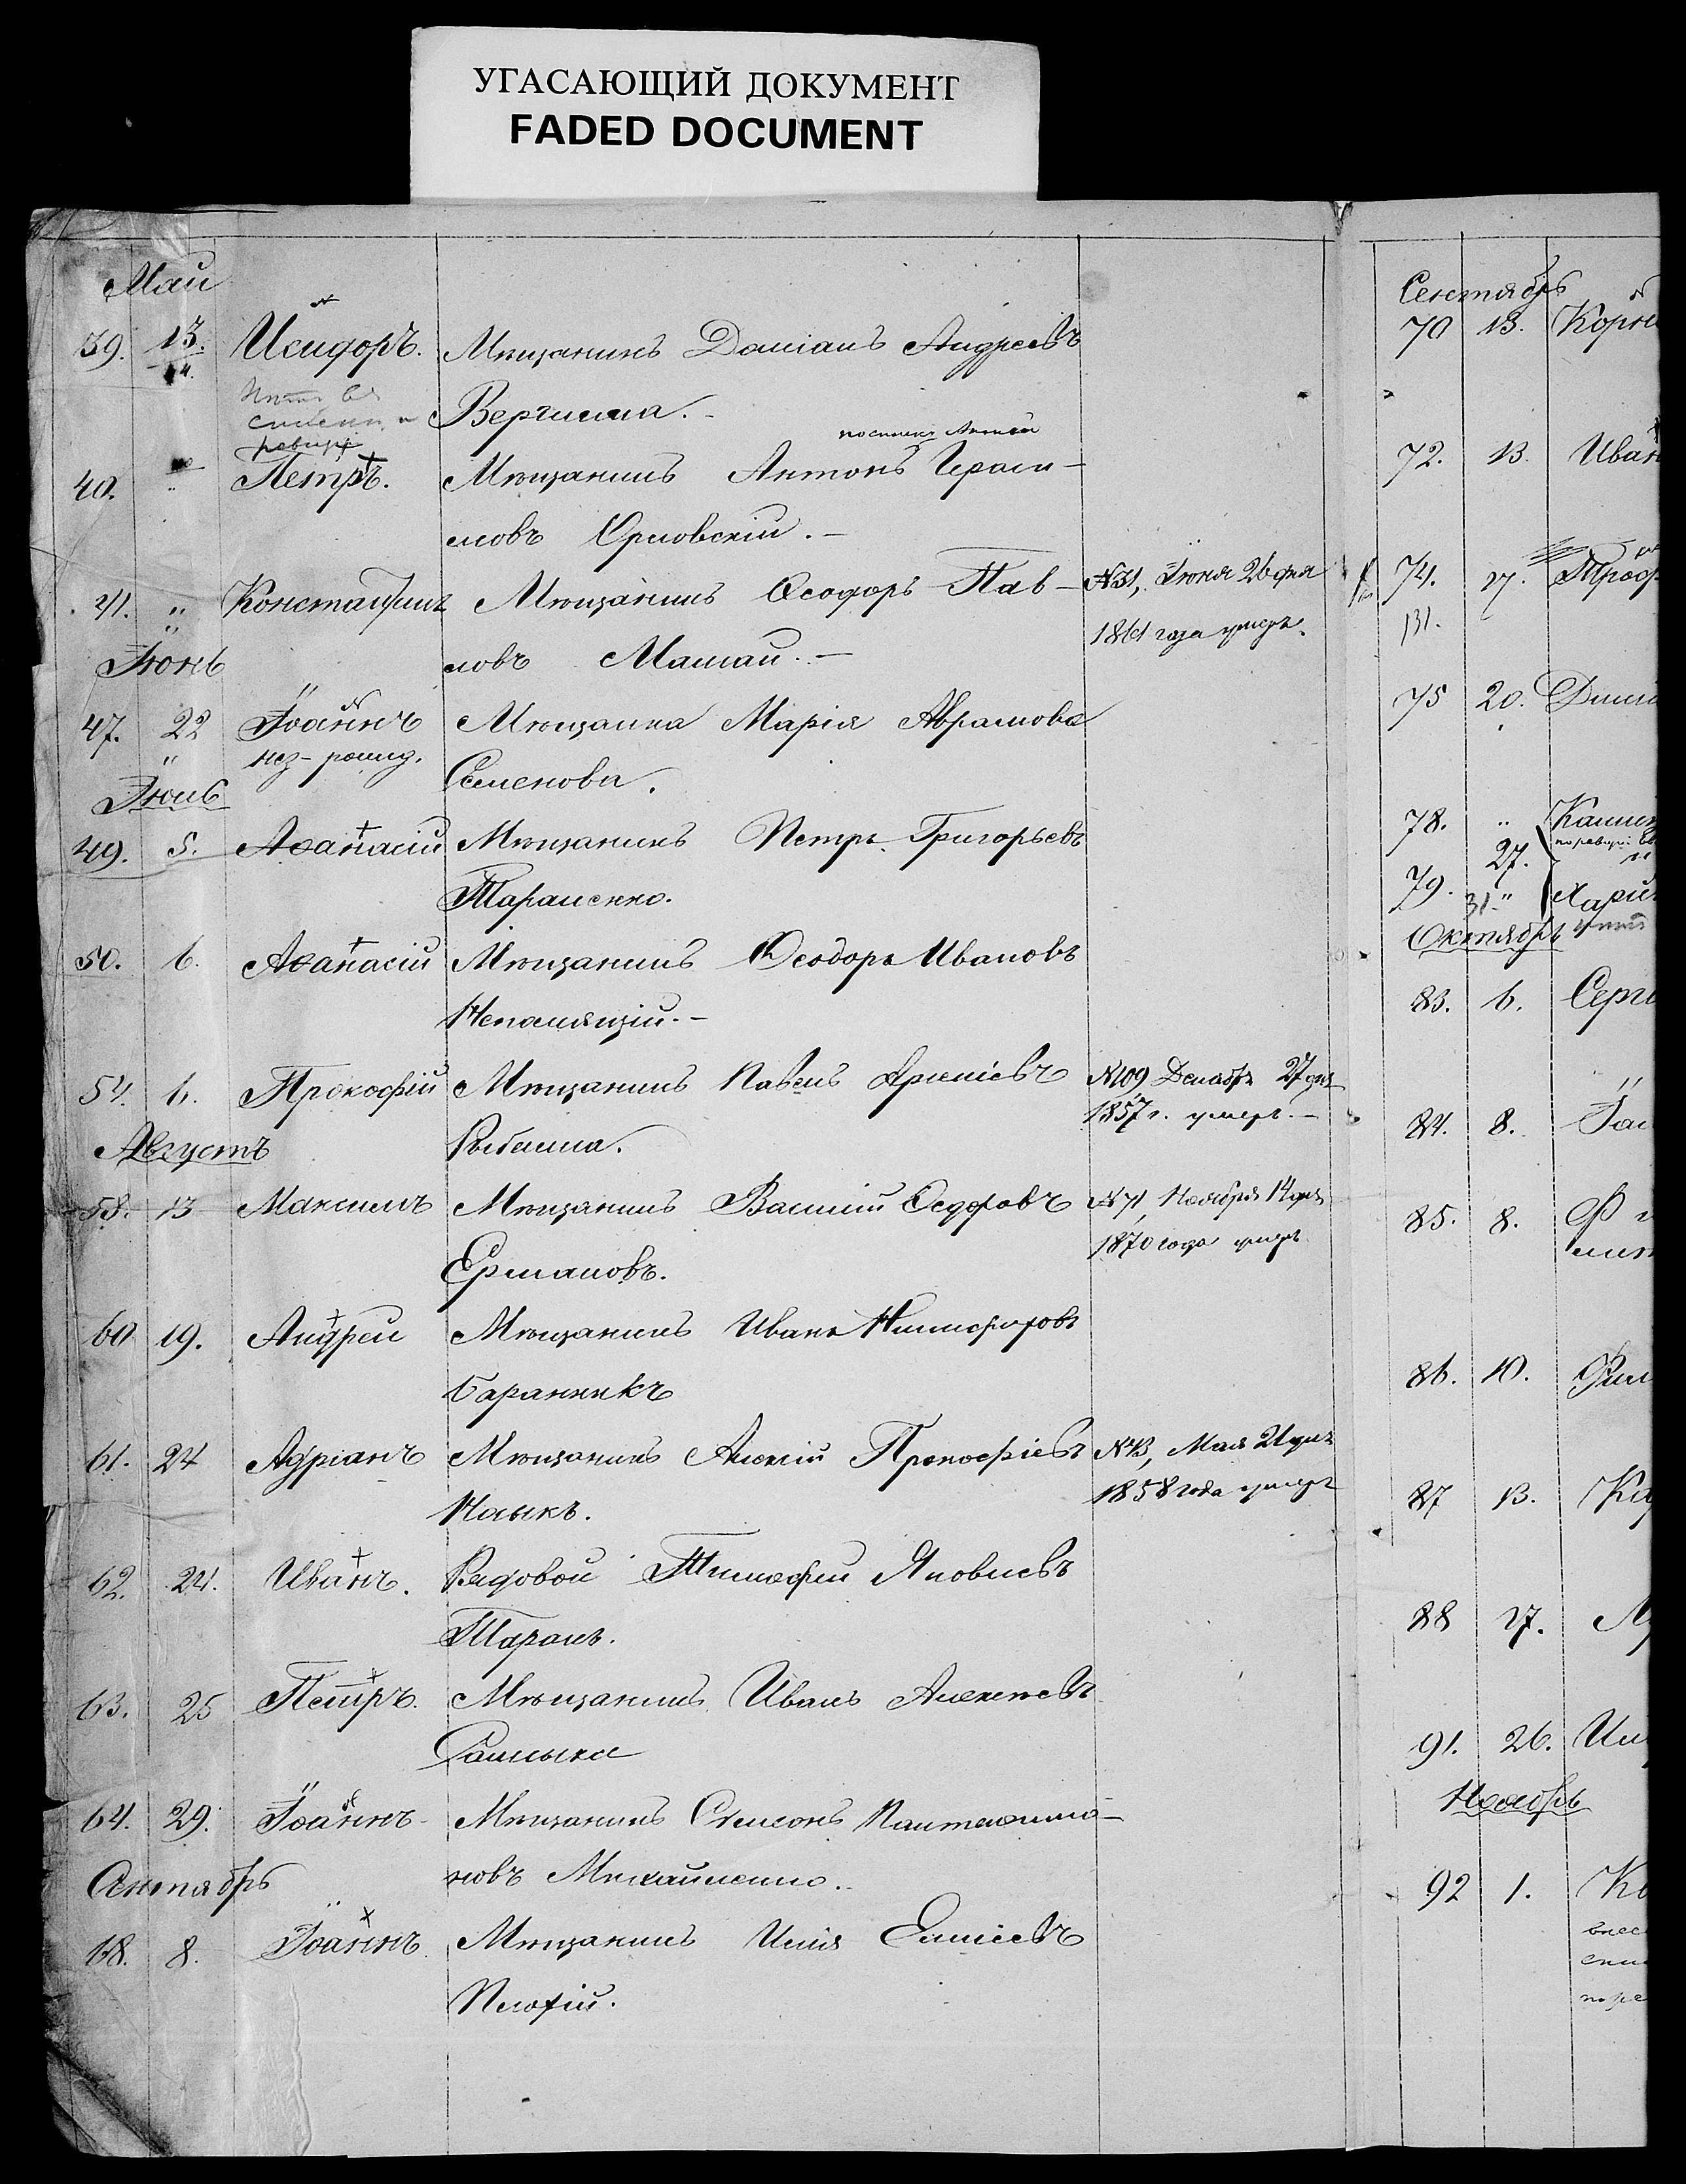 УГАСАЮЩИЙ ДОКУМЕНТ
FADED DOCUMENT
Май
39. 13. Исидоръ. Мѣщанинъ Даміанъ Андреевъ
Вергилла.
ревиз
40. " Петръ. Мѣщанинъ Антонъ Гераси-
мовъ Орловскій.
41. " Константинъ Мѣщанинъ Ѳеодоръ Пав- №31, Іюня 26 дня
1861 года умеръ.
ловъ Машай.
Іюнь
47. 22 Іоаннъ Мѣщанка Марія Аврамова
нез-рожд. Семенова.
Іюль
49. 5. Аѳанасій Мѣщанинъ Петръ Григорьевъ
Тарасенко.
50. 6. Аѳанасій Мѣщанинъ Ѳеодоръ Ивановъ
Непомящій.
54. 6. Прокофій Мѣщанинъ Павелъ Арсеніевъ №109 Декабр 27 дня
1857 г. умеръ.
Августъ
58. 13 Максимъ Мѣщанинъ Василій Ѳедоровъ №71, Ноября 14 дня
1870 года умеръ
Ермаловъ.
60 19. Андрей Мѣщанинъ Иванъ Никифоровъ
Баранникъ
61. 24 Адріанъ Мѣщанинъ Алексій Прокофіевъ №43, Мая 21 дня
1858 года умеръ
Носыкъ.
62. 24. Иванъ. Рядовой Тимофей Яковлевъ
Таранъ.
63. 25 Петръ. Мѣщанинъ Иванъ Алексѣевъ
64. 29. Іоаннъ Мѣщанинъ Симеонъ Пантелеимо-
новъ Михайленко.
Сентябрь
68. 8. Іоаннъ. Мѣщанинъ Илія Елисеевъ
Плохій.
Сентябрь
70 13. Корни
72. 13. Иван
74. 27. Троф
131.
75 20. Дими
78. "
27.
79. 31." Хари
Октябрь
83. 6. Серги
84. 8. Іоа
85. 8.
86. 10. Фил
87 13.
88 27.
91. 26.
Ноябрь
92 1. Ко
внес
спи
по ре